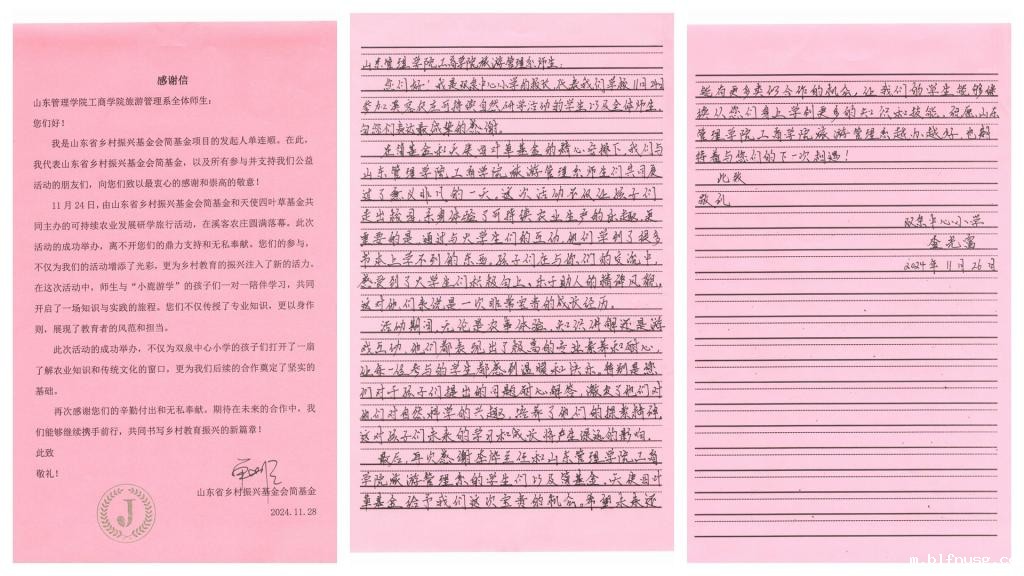 感谢信
山东管理学院工商学院旅游管理系全体师生：
您们好！
我是山东省乡村振兴基金会简基金项目的发起人单连顺。在此，
我代表山东省乡村振兴基金会简基金，以及所有参与并支持我们公益
活动的朋友们，向您们致以最衷心的感谢和崇高的敬意！
11月24日，由山东省乡村振兴基金会简基金和天使四叶草基金共
同主办的可持续农业发展研学旅行活动，在溪客农庄圆满落幕。此次
活动的成功举办，离不开您们的鼎力支持和无私奉献。您们的参与，
不仅为我们的活动增添了光彩，更为乡村教育的振兴注入了新的活力。
在这次活动中，师生与“小鹿游学”的孩子们一对一陪伴学习，共同
开启了一场知识与实践的旅程。您们不仅传授了专业知识，更以身作
则，展现了教育者的风范和担当。
此次活动的成功举办，不仅为双泉中心小学的孩子们打开了一扇
了解农业知识和传统文化的窗口，更为我们后续的合作奠定了坚实的
基础。
再次感谢您们的辛勤付出和无私奉献。期待在未来的合作中，我
们能够继续携手前行，共同书写乡村教育振兴的新篇章！
此致
敬礼！
山东省乡村振兴基金会简基金
2024.11.28
J
山东管理学院工商学院旅游管理系师生：
您们好！我是双泉中心小学的校长，代表我们学校11月24日
参加美客农庄可持续自然研学活动的学生以及全体师生，
向您们表达最诚挚的感谢。
在简基金和天使四叶草基金的精心安排下，我们与
山东管理学院工商学院旅游管理系师生们共同度
过了意义非凡的一天。这次活动不仅让孩子们
走出校园，亲身体验了可持续农业生产的乐趣，更
重要的是，通过与大学生们的互动，他们学到了很多
书本上学不到的东西。孩子们在与你们的交流中，
感受到了大学生们积极向上、乐于助人的精神风貌，
这对他们来说是一次非常宝贵的成长经历。
活动期间，无论是农事体验、知识讲解还是游
戏互动，他们都表现出了极高的专业素养和耐心，
让每一位参与的学生都感到温暖和快乐。特别是您
们对于孩子们提出的问题耐心解答，激发了他们对
他们对自然科学的兴趣，培养了他们的探索精神，
这对孩子们未来的学习和成长将产生深远的影响。
最后，再次感谢李主任和山东管理学院工商
学院旅游管理系的学生们以及简基金、天使四叶
草基金给予我们这次宝贵的机会。希望未来还
能有更多类似合作的机会，让我们的学生能够继
续从您们身上学到更多的知识和技能。祝愿山东
管理学院工商学院旅游管理系越办越好，也期
待着与您们的下一次相遇！
此致
敬礼
双泉中心小学
金光富
2024年11月26日
m.blfpusg.co